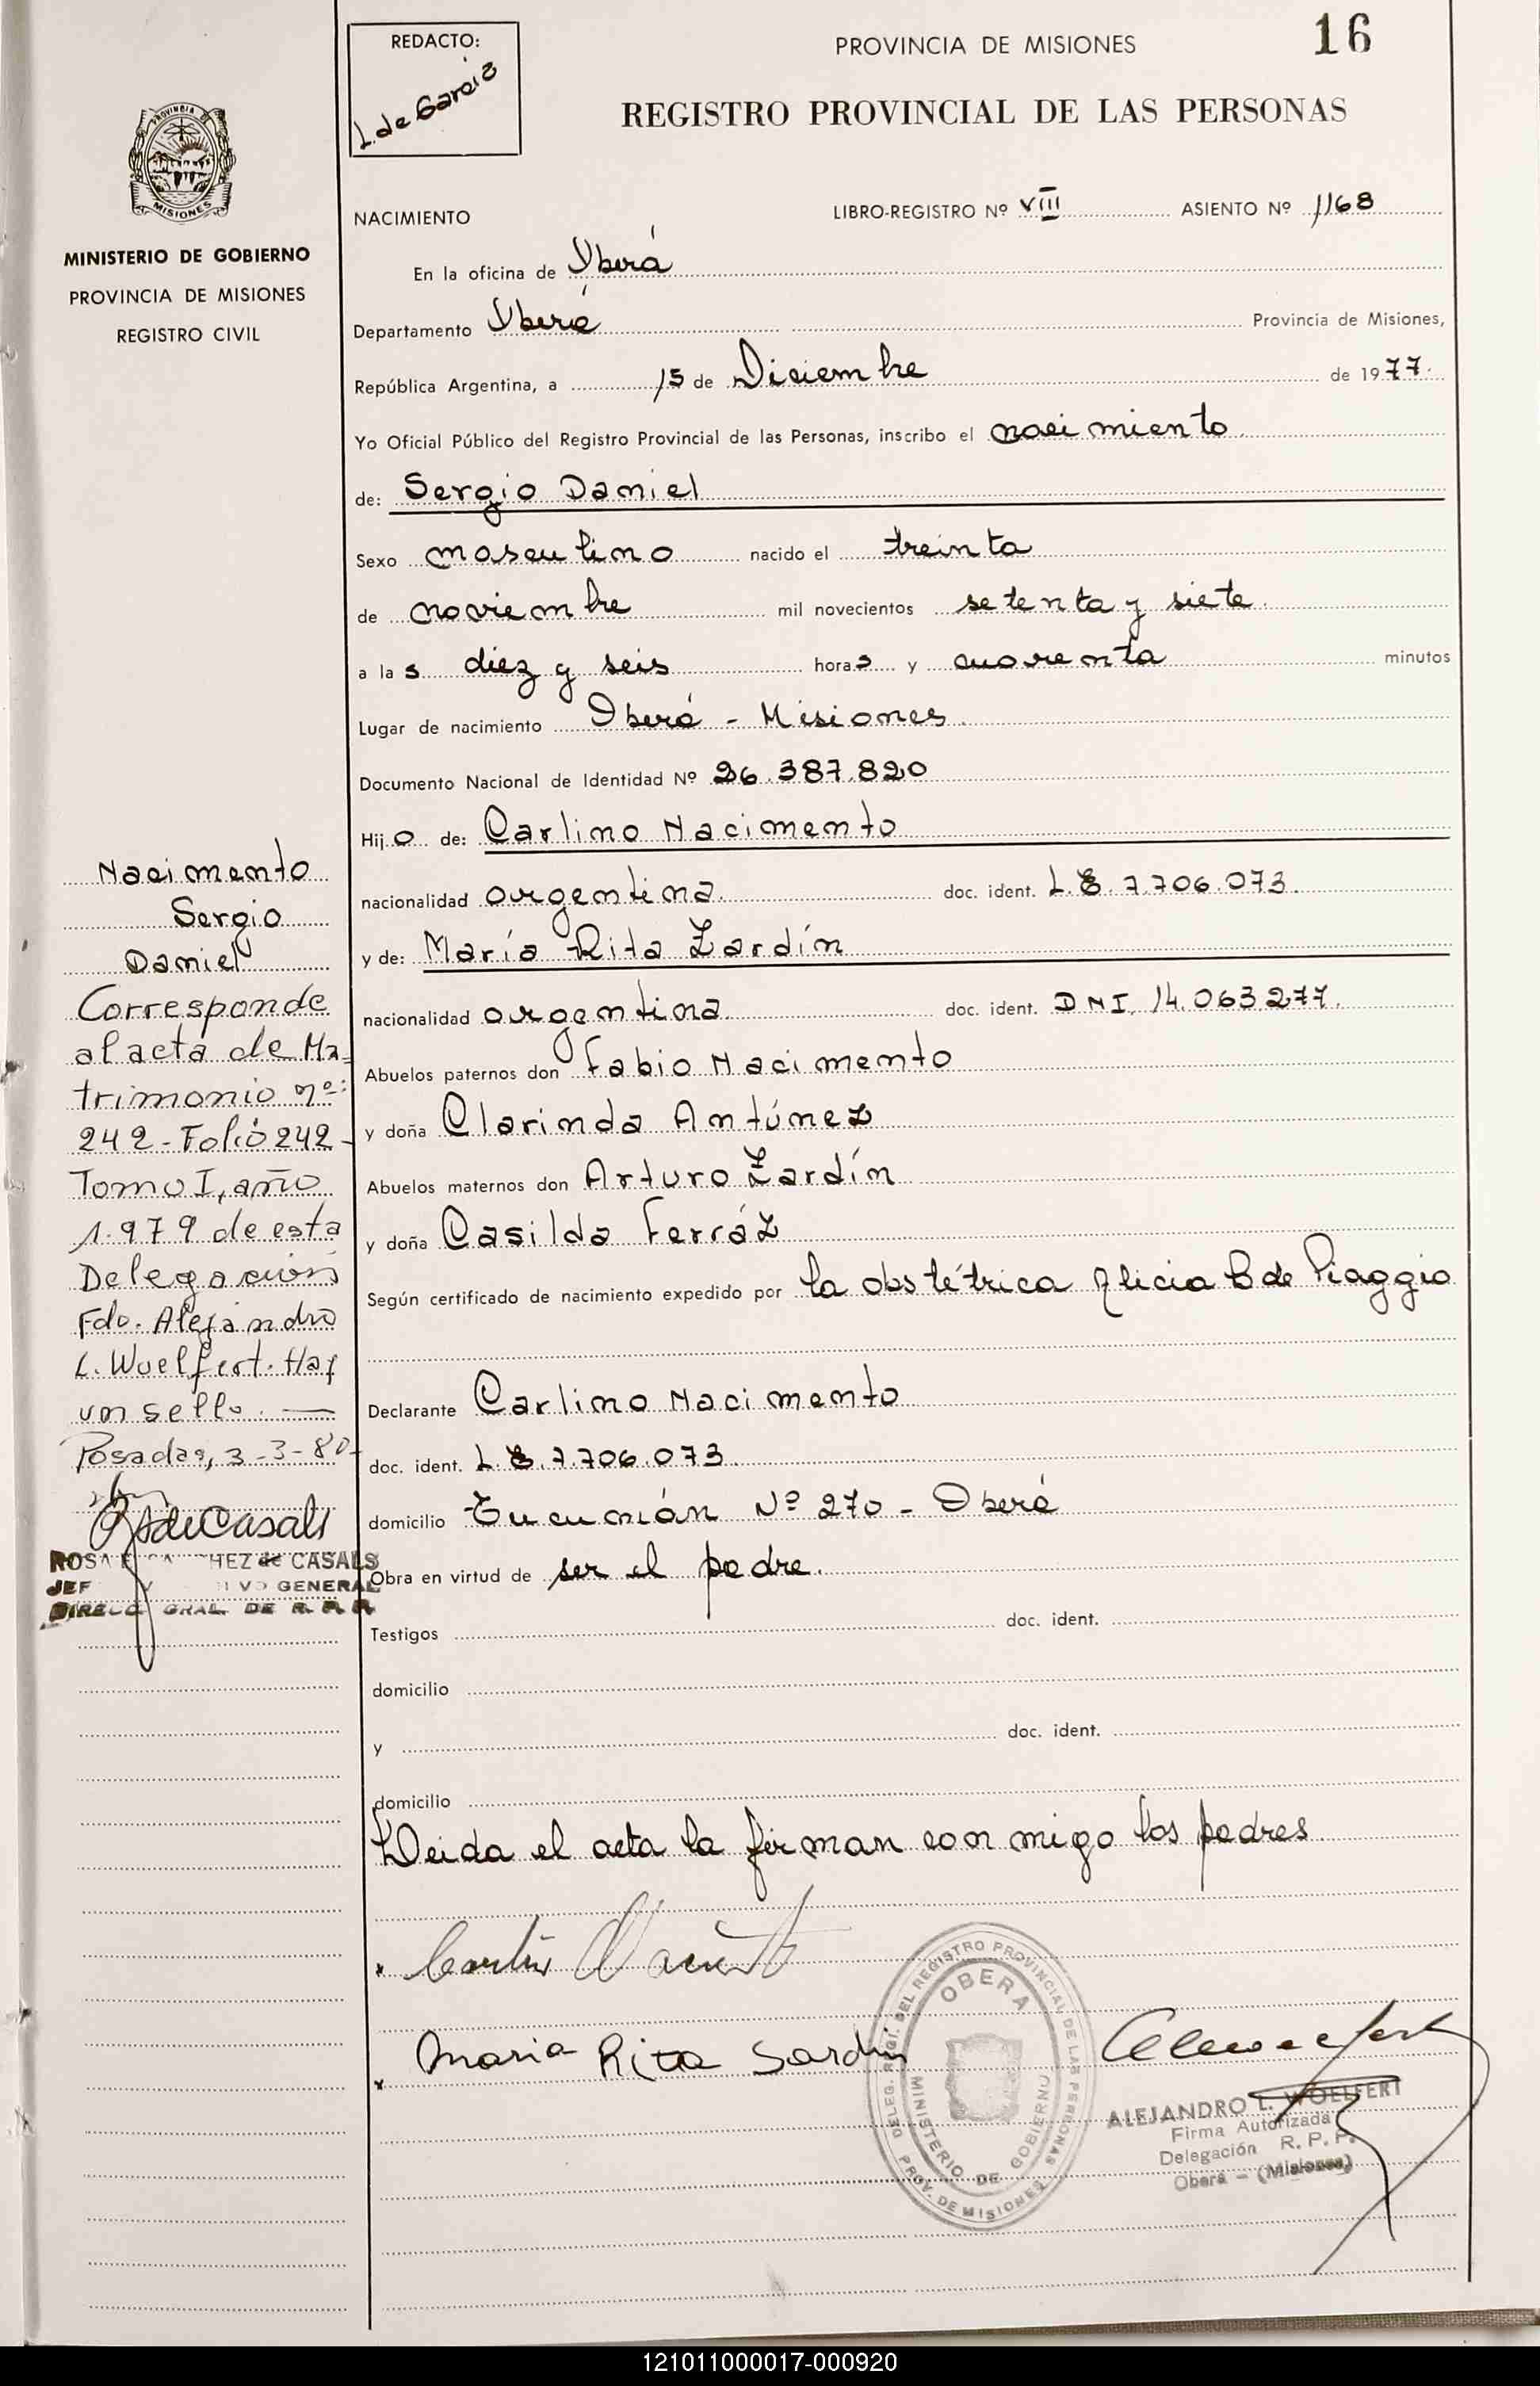 REDACTO:
L. de García
PROVINCIA DE MISIONES
16
REGISTRO PROVINCIAL DE LAS PERSONAS
PROVINCIA DE
MISIONES
MINISTERIO DE GOBIERNO
PROVINCIA DE MISIONES
REGISTRO CIVIL
NACIMIENTO
LIBRO-REGISTRO Nº VIII ASIENTO Nº 1168
En la oficina de Oberá
Departamento Oberá Provincia de Misiones,
República Argentina, a 15 de Diciembre de 1977.
Yo Oficial Público del Registro Provincial de las Personas, inscribo el nacimiento
de: Sergio Daniel
Sexo masculino nacido el treinta
de noviembre mil novecientos setenta y siete
a las diez y seis horas y cuarenta minutos
Lugar de nacimiento Oberá - Misiones
Documento Nacional de Identidad Nº 26.387.820
Hijo de: Carlino Nacimento
nacionalidad argentina. doc. ident. L.E. 7.706.073.
y de: María Rita Zardín
nacionalidad argentina doc. ident. DNI. 14.063.277.
Abuelos paternos don Fabio Nacimento
y doña Clarinda Antúnez
Abuelos maternos don Arturo Zardín
y doña Casilda Ferráz
Según certificado de nacimiento expedido por la obstétrica Alicia B de Piaggio
Declarante Carlino Nacimento
doc. ident. L.E. 7.706.073.
domicilio Tucumán Nº 270 - Oberá
Obra en virtud de ser el padre.
Testigos doc. ident.
domicilio
y doc. ident.
domicilio
Leida el acta la firman conmigo los padres
Maria Rita Sardin
Nacimento
Sergio
Daniel
Corresponde
al acta de Ma-
trimonio nº:
242-Folio 242-
Tomo I, año
1.979 de esta
Delegación
Fdo. Alejandro
L. Woelfert. Hay
un sello. —
Posadas, 3-3-80-
R S de Casals
ROSA HEZ de CASALS
JEF VO GENERAL
DIRECC GRAL. DE R. P. P.
DELEG. REGI. DEL REGISTRO PROVINCIAL DE LAS PERSONAS
PROV. DE MISIONES
OBERA
MINISTERIO DE GOBIERNO
ALEJANDRO L. WOELFERT
Firma Autorizada
Delegación R. P. P.
Oberá - (Misiones)
121011000017-000920